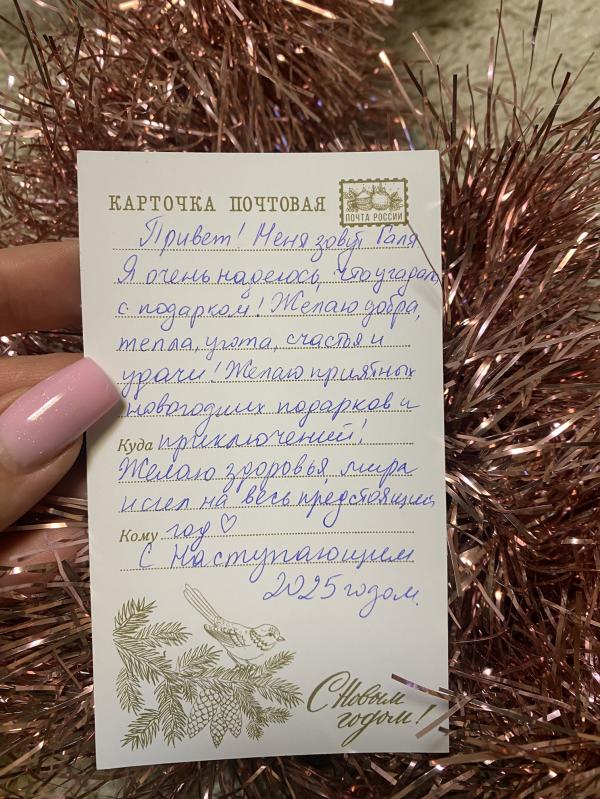 КАРТОЧКА ПОЧТОВАЯ
ПОЧТА РОССИИ
Привет! Меня зовут Галя
Я очень надеюсь, что угадала
с подарком! Желаю добра,
тепла, уюта, счастья и
удачи! Желаю приятных
новогодних подарков и
Куда приключений!
Желаю здоровья, мира
и сил на весь предстоящий
Кому год ♡
С Наступающим
2025 годом.
С Новым
годом!